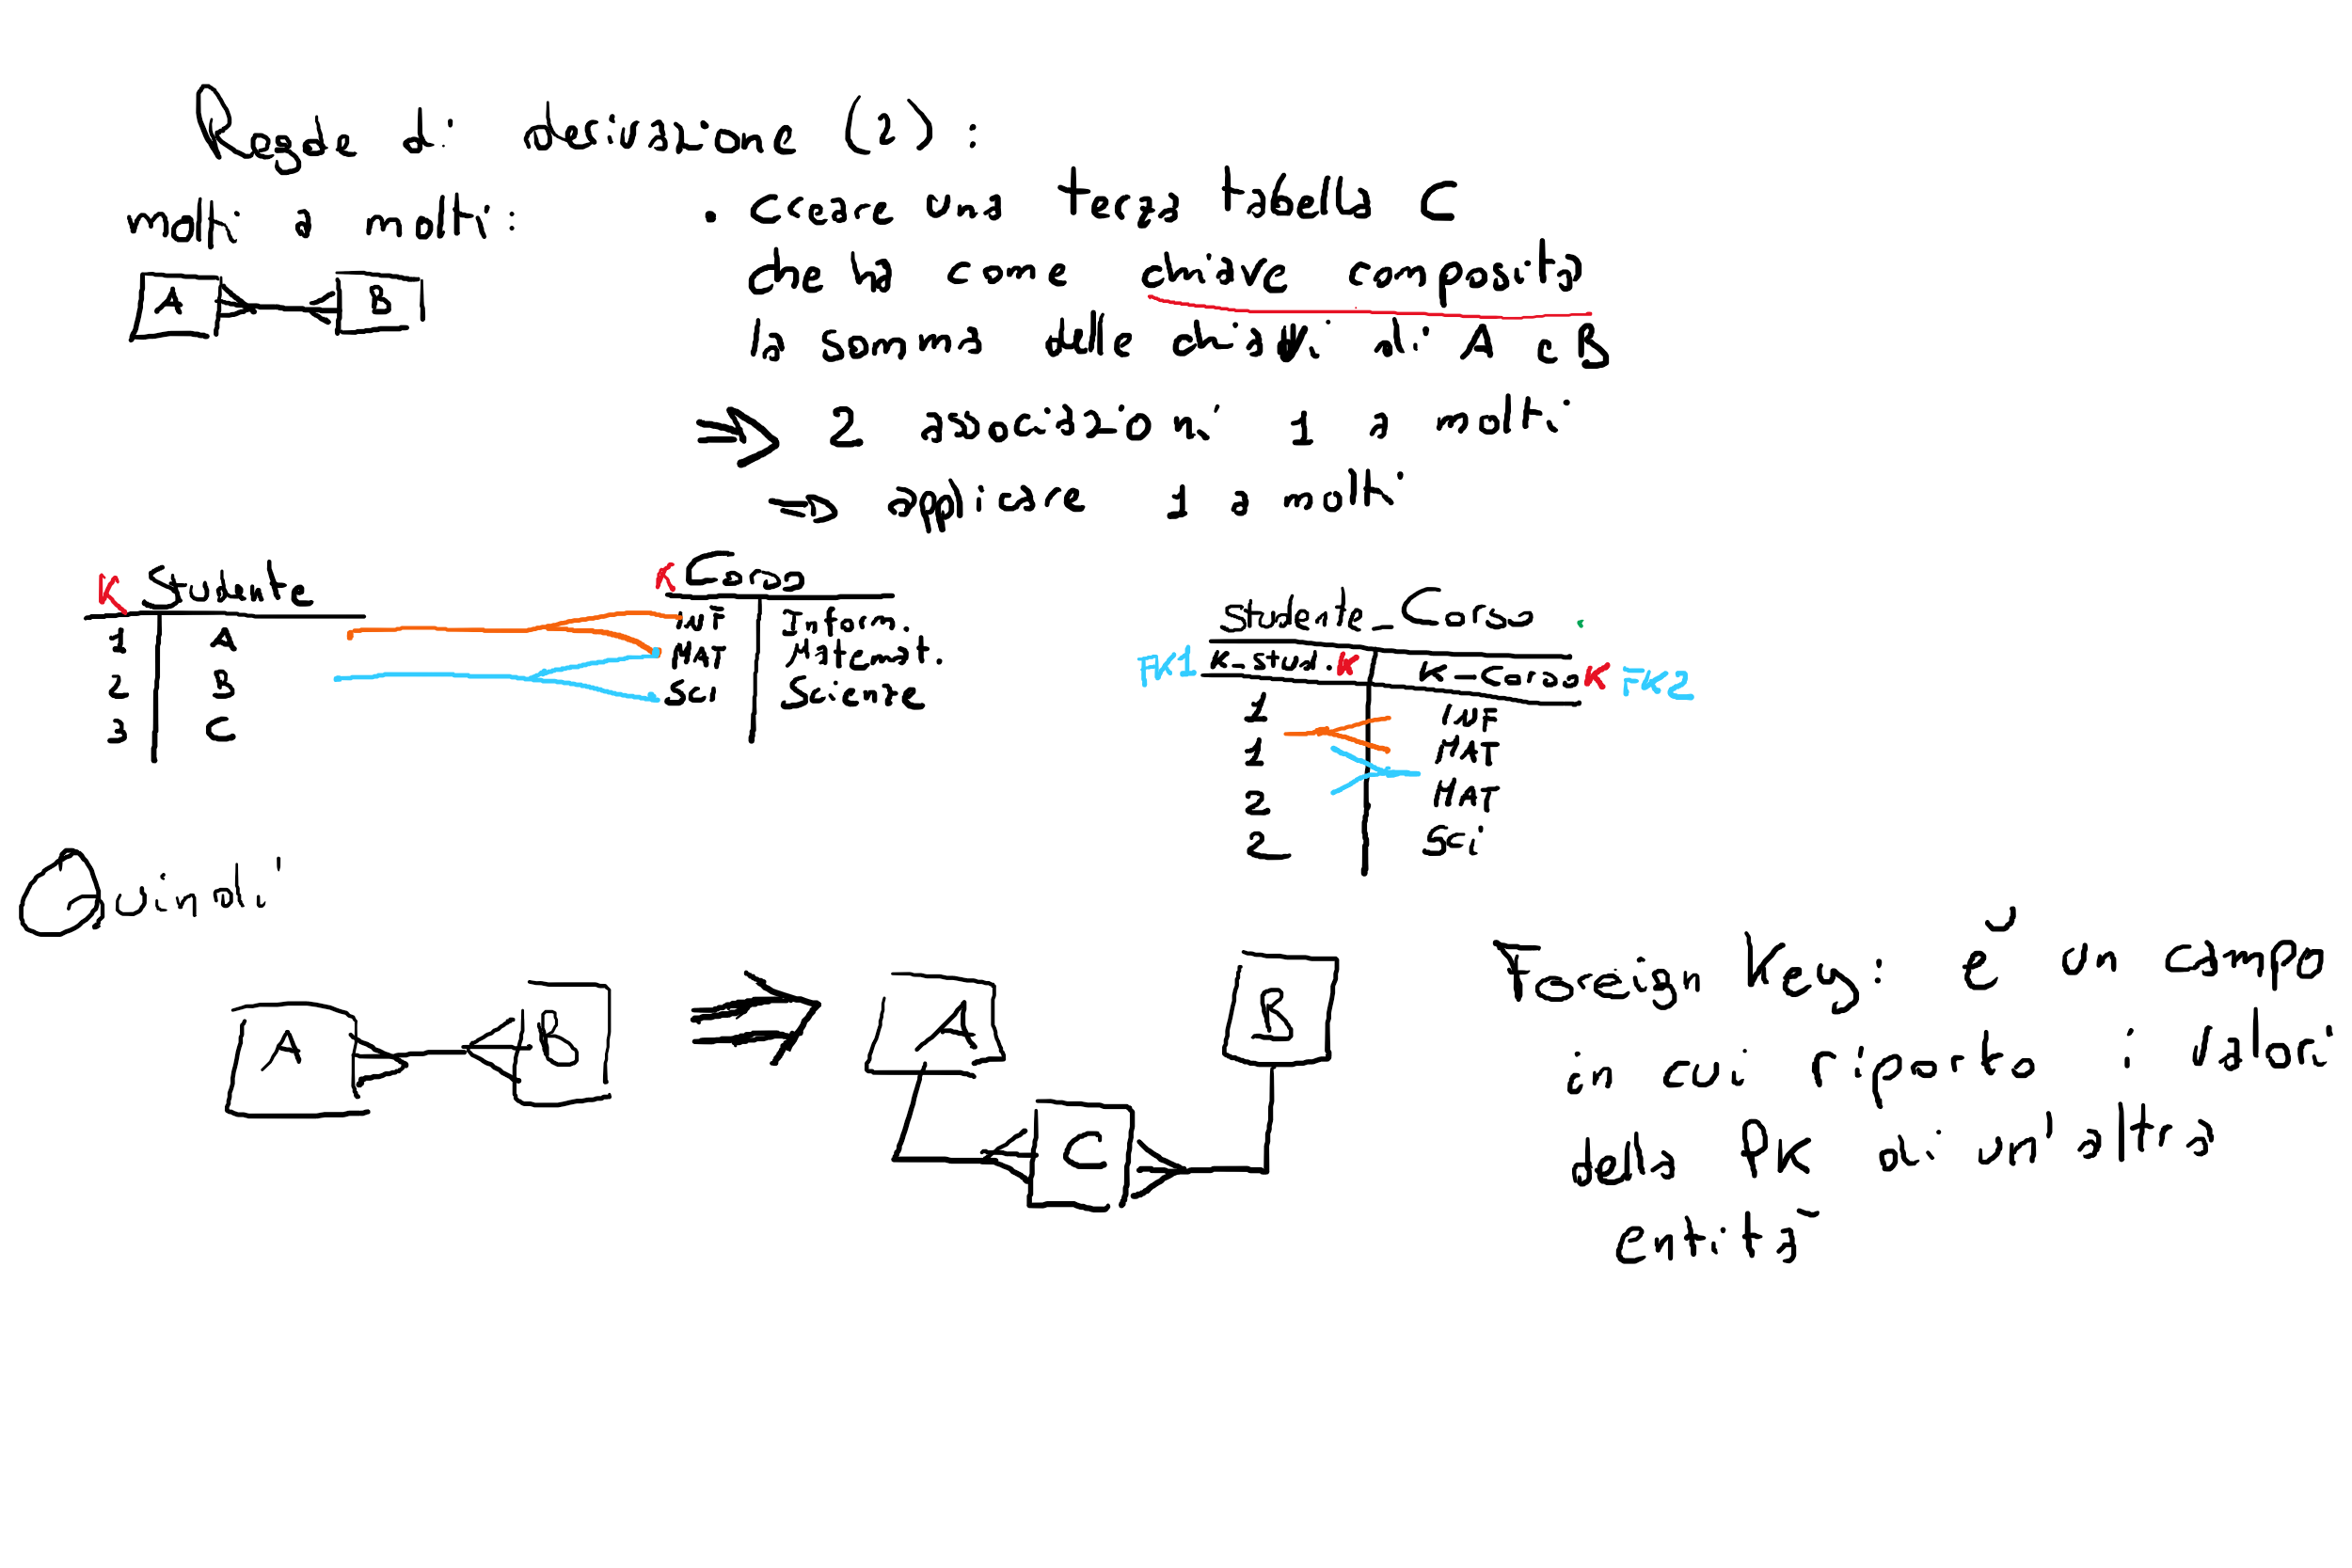 Regole di derivazione (2):
molti a molti:
• creare una terza tabella C
che ha come chiave composita
la somma delle chiavi di A e B
⇒ 2 associazioni 1 a molti
⇒ applicare 1 a molti
A B
K Studente
1 A
2 B
3 C
K Corso
INF Inform.
MAT Matemat.
SCI Scienze
Studente_Corso
FK1 K_Stud. K K_Corso K FK2
1 INF
1 MAT
2 MAT
2 SCi
Quindi
A B ⇒ A B
C
Foreign Key: è un campo
in cui riporto i valori
della PK di un'altra
entità